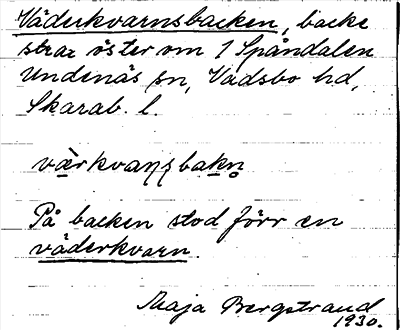 Väderkvarnsbacken, backe
strax öster om 1 Spåndalen
Undenäs sn, Vadsbo hd,
Skarab. l.
På backen stod förr en
väderkvarn.
Maja Bergstrand
1930.